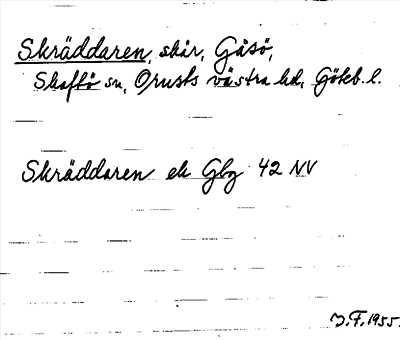 Skräddaren, skär, Gåsö,
Skaftö sn, Orusts västra hd, Göteb. l.
Skräddaren ek Gbg 42 NV
J.F. 1955.